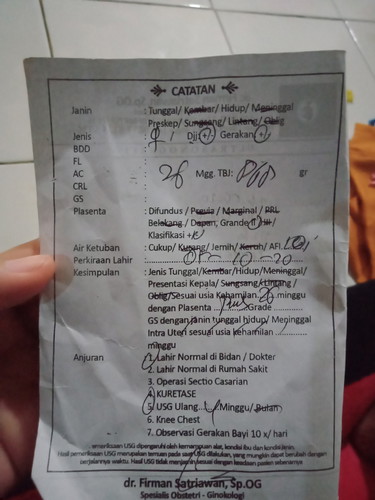 CATATAN
Janin : Tunggal/ Kembar/ Hidup/ Meninggal
Preskep/ Sungsang/ Lintang/ Oblig
Jenis : Djj +/- Gerakan +/-
BDD :
FL :
AC : 26 Mgg. TBJ: gr
CRL :
GS :
Plasenta : Difundus / Previa / Marginal / PRL
Belakang / Depan, Grande II / III /
Klasifikasi +/-
Air Ketuban : Cukup/ Kurang/ Jernih/ Keruh/ AFI.
Perkiraan Lahir : 01 - 10 - 20
Kesimpulan : Jenis Tunggal/Kembar/Hidup/Meninggal/
Presentasi Kepala/ Sungsang/Lintang /
Oblig/Sesuai usia Kehamilan 26 minggu
dengan Plasenta Grade
GS dengan janin tunggal hidup/ Meninggal
Intra Uteri sesuai usia kehamilan
minggu
Anjuran : 1. Lahir Normal di Bidan / Dokter
2. Lahir Normal di Rumah Sakit
3. Operasi Sectio Casarian
4. KURETASE
5. USG Ulang Minggu/ Bulan
6. Knee Chest
7. Observasi Gerakan Bayi 10 x/ hari
pemeriksaan USG dipengaruhi oleh kemampuan alat, kondisi ibu dan kondisi janin.
Hasil pemeriksaan USG merupakan temuan pada saat USG dilakukan, yang mungkin dapat berubah dengan
berjalannya waktu. Hasil USG tidak menjamin sesuai dengan keadaan pasien sebenarnya
dr. Firman Satriawan, Sp.OG
Spesialis Obstetri - Ginokologi